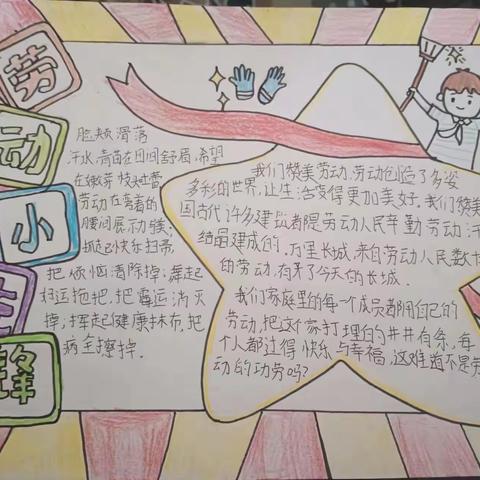 劳
动
小
锋
脸颊滑落
汗水,苗在田间舒眉,希望
在嫩芽枝头吐蕾
劳动在弯着的
腰间展示力
抓起快乐扫帚
把烦恼清除掉;舞起
好运拖把,把霉运消灭
掉;挥起健康抹布,把
病全擦掉.
我们赞美劳动,劳动创造了多姿
多彩的世界,让生活变得更加美好,我们赞美
国古代许多建筑都是劳动人民辛勤劳动汗
结晶建成的,万里长城,来自劳动人民数
的劳动,有了今天的长城.
我们家庭里的每一个成员都用自己的
劳动,把这个家打理的井井有条,每
个人都过得快乐与幸福,这难道不是劳
动的功劳吗?